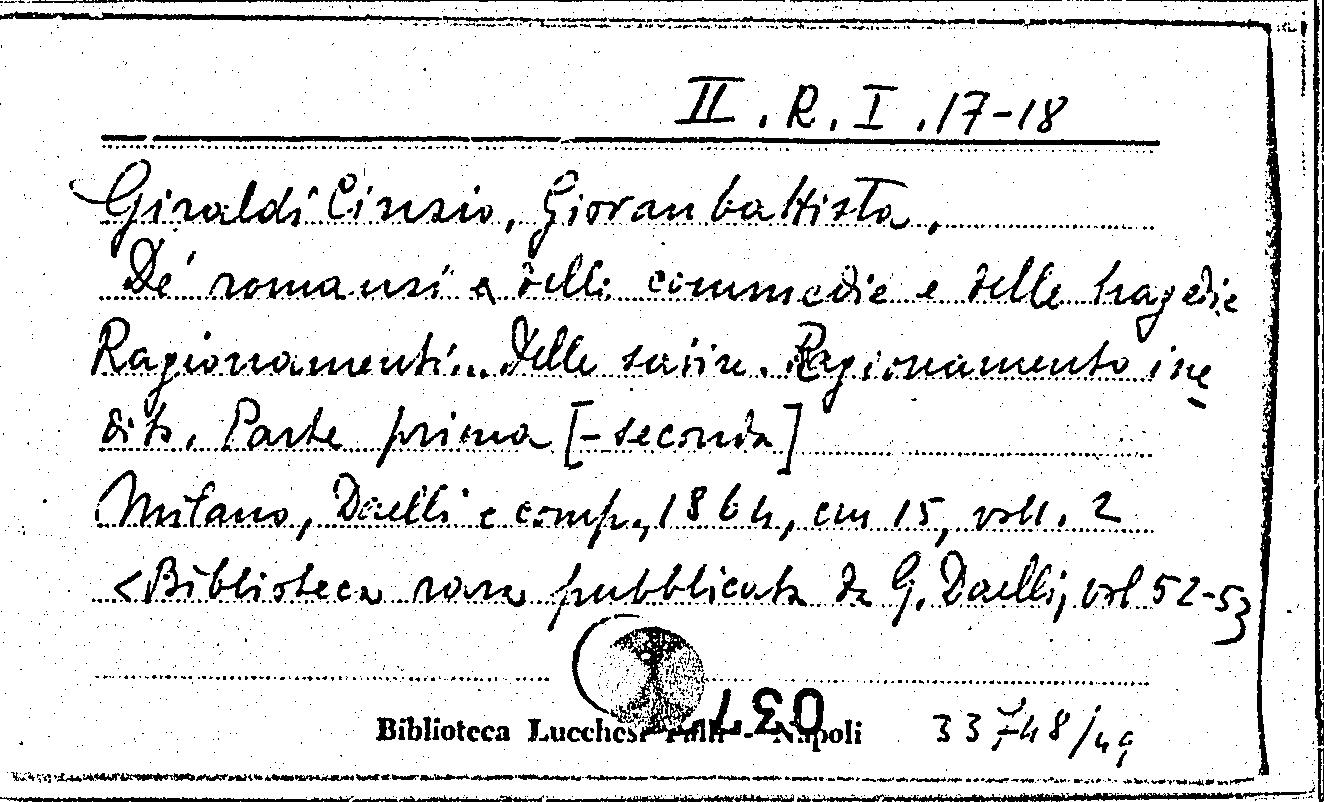 II. R. I. 17-18
Giraldi Cinzio, Giovanbattista,
De' romanzi e delle commedie e delle tragedie
Ragionamenti... Delle satire. Ragionamento ine
dito. Parte prima [-seconda]
Milano, Daelli e comp., 1864, cm 15, voll. 2
<Biblioteca rara pubblicata da G. Daelli, vol 52-53
Biblioteca Lucchesi Palli - Napoli 33748/49